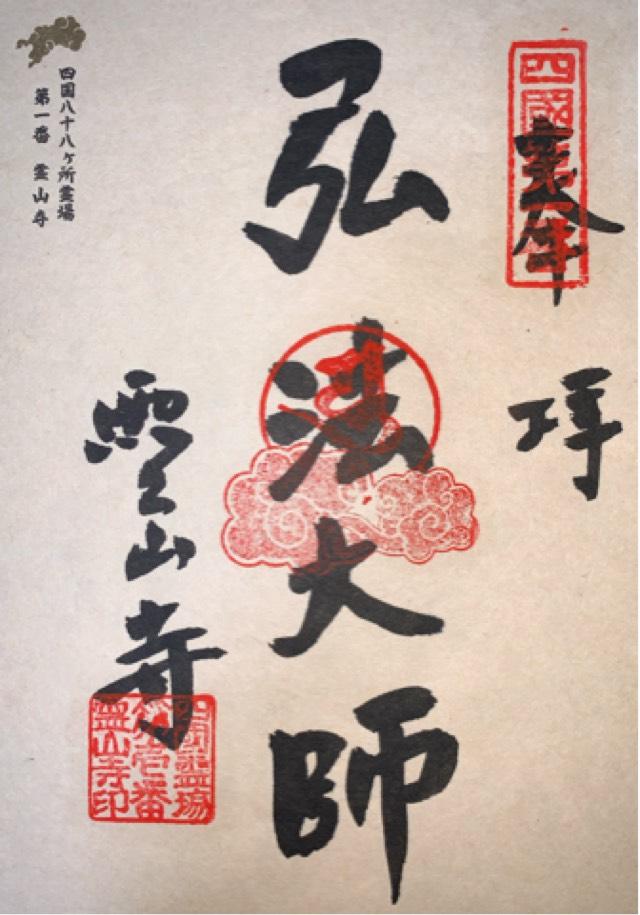 拝
弘法大師
霊山寺
四國霊場
第壱番
霊山寺印
四国八十八ヶ所霊場
第一番 霊山寺